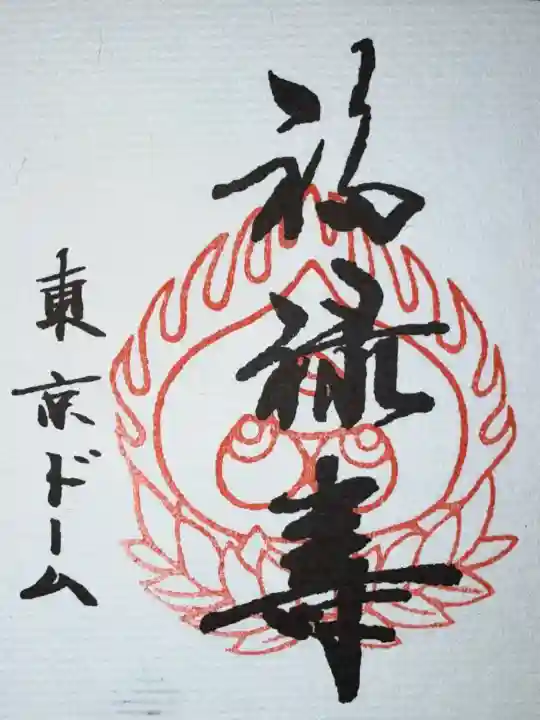 福禄寿
東京ドーム